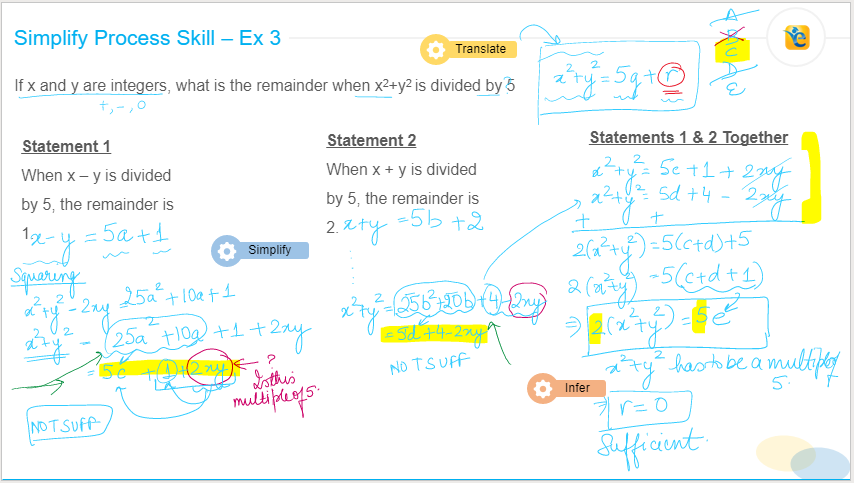 Simplify Process Skill – Ex 3
Translate
x²+y² = 5q + r
A
B
C
D
E
If x and y are integers, what is the remainder when x²+y² is divided by 5
?
+, -, 0
Statement 1
When x – y is divided
by 5, the remainder is
1.
x-y = 5a+1
Simplify
Squaring
x²+y² - 2xy = 25a² + 10a + 1
x²+y² = 25a² + 10a + 1 + 2xy
= 5c + 1 + 2xy
?
Is this
multiple of 5.
NOT SUFF
Statement 2
When x + y is divided
by 5, the remainder is
2.
x+y = 5b + 2
x²+y² = 25b²+20b + 4 - 2xy
= 5d+4-2xy
NOT SUFF
Statements 1 & 2 Together
x²+y² = 5c + 1 + 2xy
x²+y² = 5d + 4 - 2xy
+ +
2(x²+y²) = 5(c+d)+5
2(x²+y²) = 5(c+d+1)
⇒ 2(x²+y²) = 5e
x²+y² has to be a multiple of
5.
Infer
⇒ r = 0
Sufficient.